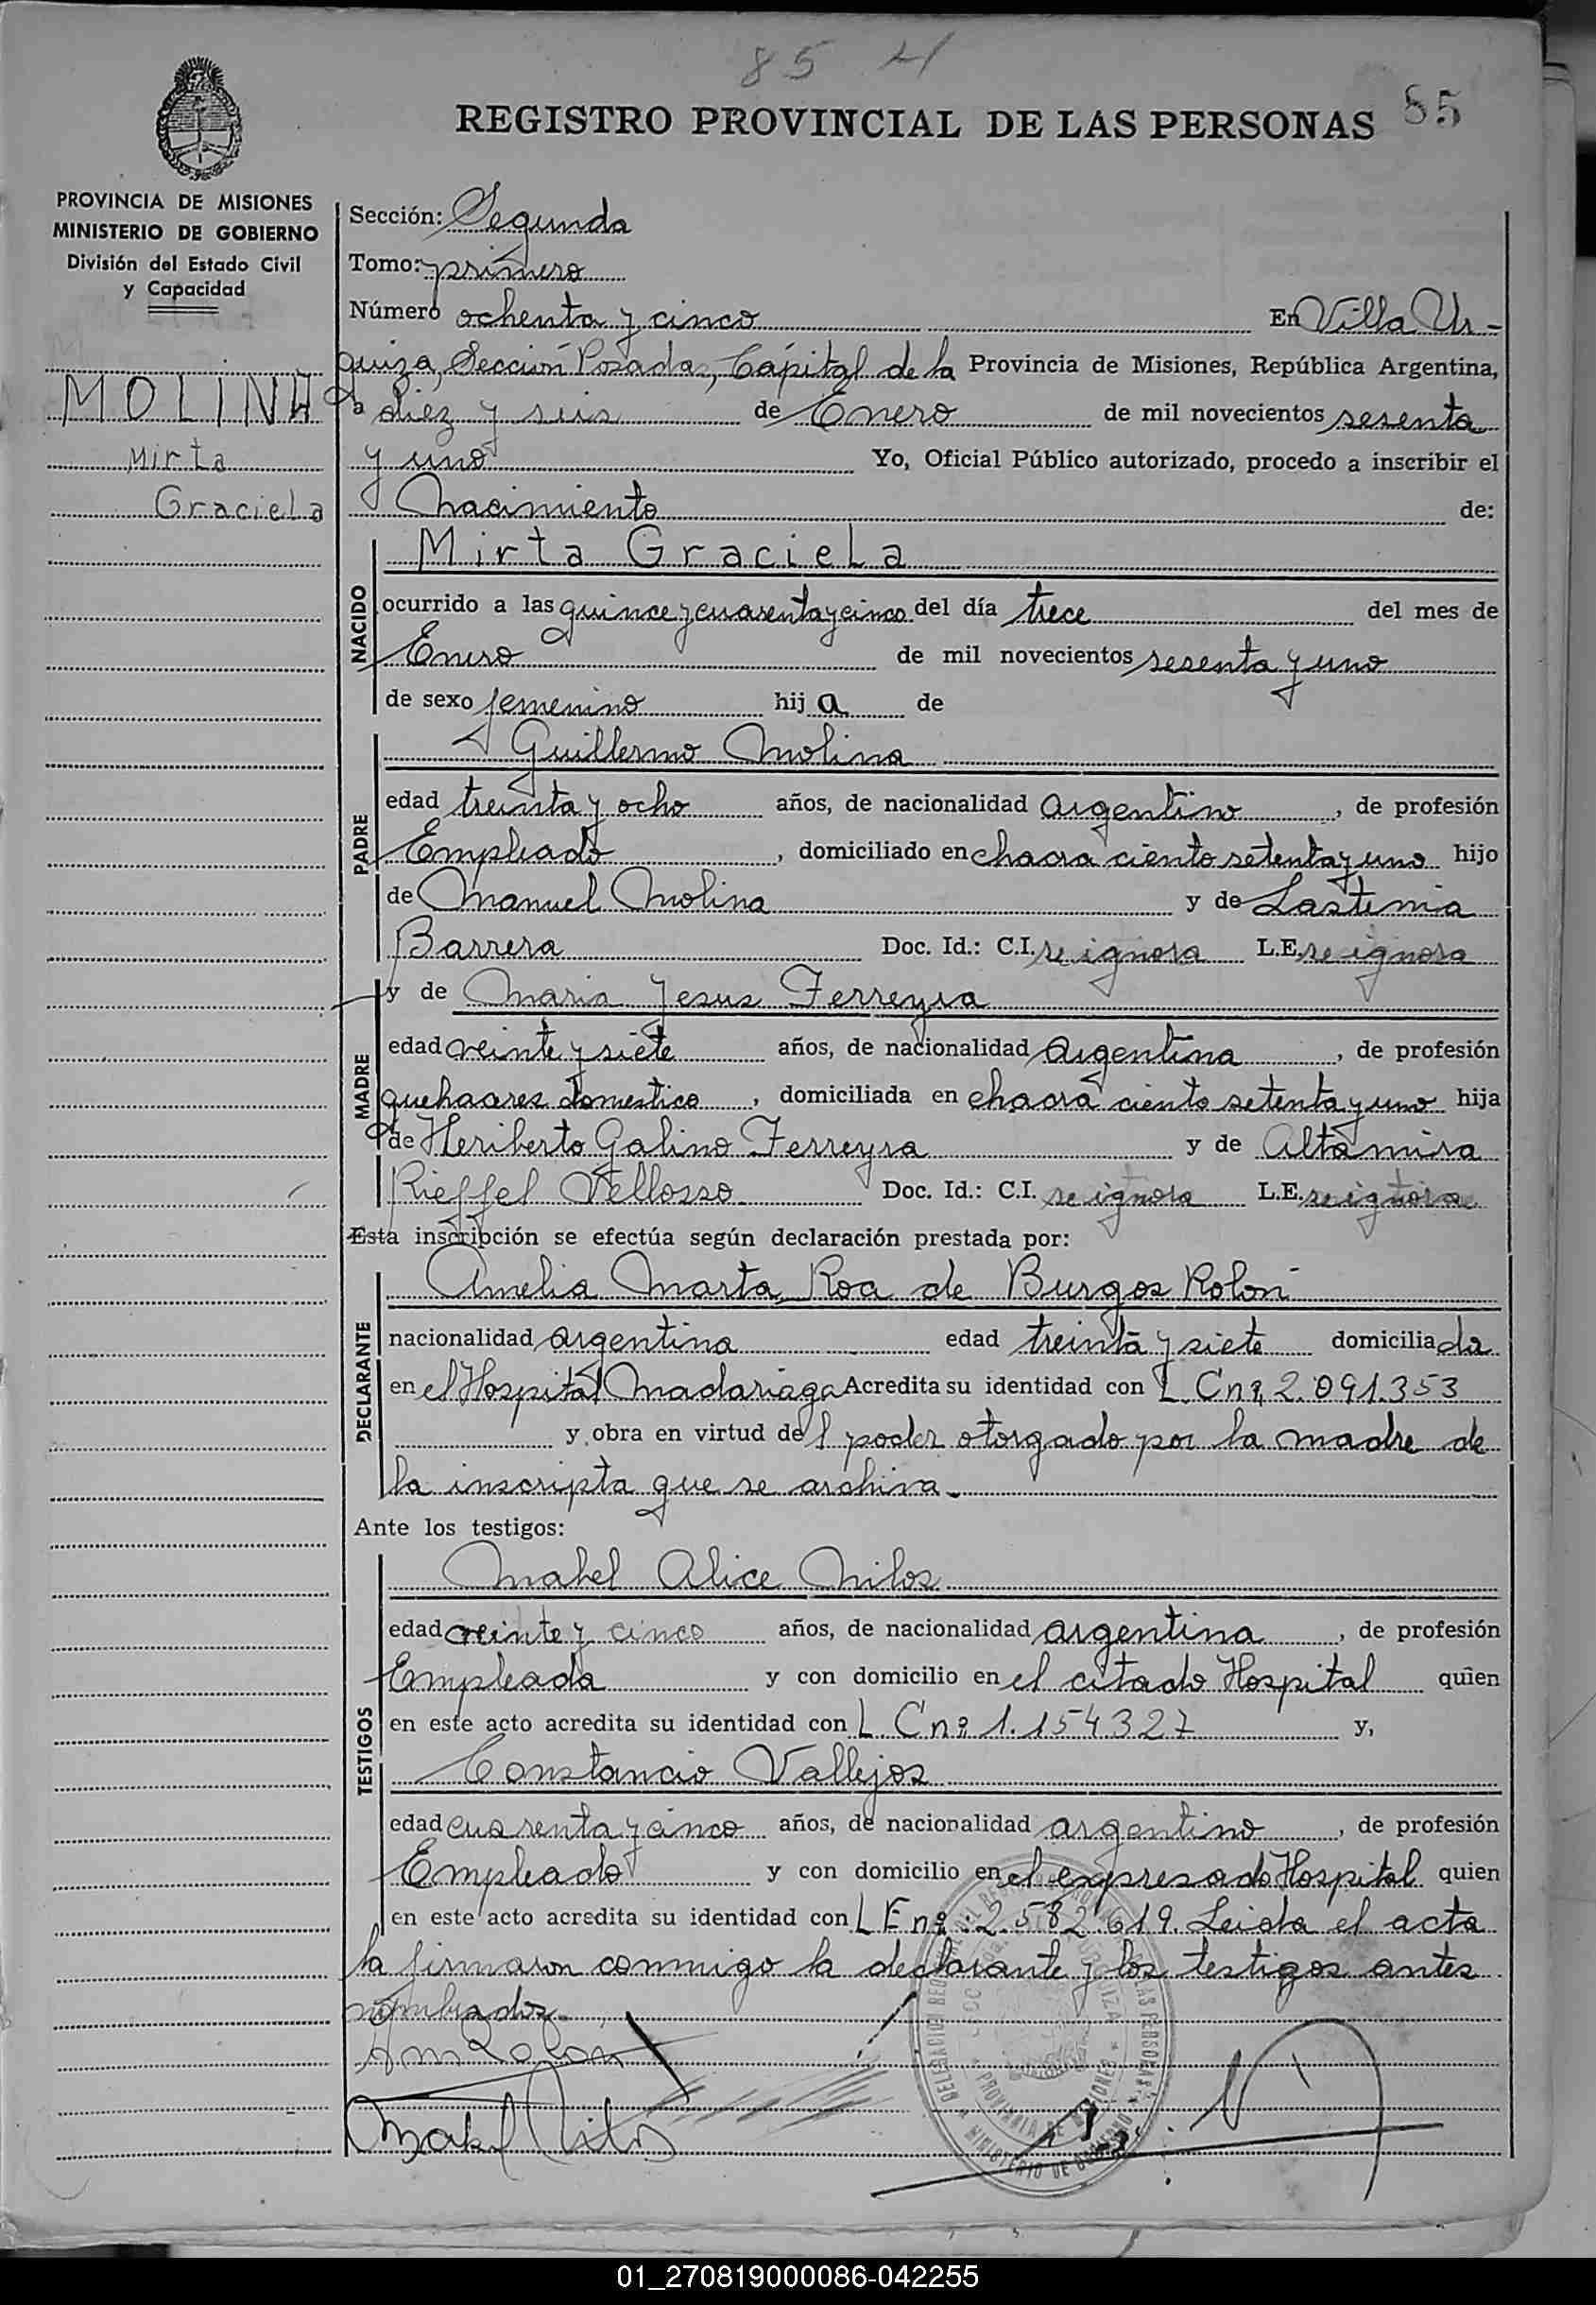 85
REGISTRO PROVINCIAL DE LAS PERSONAS
85
PROVINCIA DE MISIONES
MINISTERIO DE GOBIERNO
División del Estado Civil
y Capacidad
MOLINA
Mirta
Graciela
Sección: Segunda
Tomo: primero
Número ochenta y cinco En Villa Ur-
quiza, Sección Posadas, Cápital de la Provincia de Misiones, República Argentina,
a diez y seis de Enero de mil novecientos sesenta
y uno Yo, Oficial Público autorizado, procedo a inscribir el
Nacimiento de:
Mirta Graciela
NACIDO
ocurrido a las quince y cuarenta y cinco del día trece del mes de
Enero de mil novecientos sesenta y uno
de sexo femenino hij a de
Guillermo Molina
PADRE
edad treinta y ocho años, de nacionalidad argentino, de profesión
Empleado, domiciliado en chacra ciento setenta y uno hijo
de Manuel Molina y de Lastenia
Barrera Doc. Id.: C.I. se ignora L.E. se ignora
y de Maria Jesus Ferreyra
MADRE
edad veinte y siete años, de nacionalidad argentina, de profesión
quehaceres domestico, domiciliada en chacra ciento setenta y uno hija
de Heriberto Galino Ferreyra y de Altamira
Rieffel Vellosso Doc. Id.: C.I. se ignora L.E. se ignora
Esta inscripción se efectúa según declaración prestada por:
Amelia Marta Roa de Burgos Rolon
DECLARANTE
nacionalidad argentina edad treinta y siete domicilia da
en el Hospital Madariaga Acredita su identidad con L. C nº 2.091.353
y obra en virtud de l poder otorgado por la madre de
la inscripta que se archiva.
Ante los testigos:
Mabel Alice Milos
TESTIGOS
edad veinte y cinco años, de nacionalidad argentina, de profesión
Empleada y con domicilio en el citado Hospital quien
en este acto acredita su identidad con L C nº 1.154327 y,
Constancio Vallejos
edad cuarenta y cinco años, de nacionalidad argentino, de profesión
Empleado y con domicilio en el expresado Hospital quien
en este acto acredita su identidad con L E nº: 2.582.619. Leida el acta
la firmaron conmigo la declarante y los testigos antes
nombrados.
PROVINCIA DE MISIONES
MINISTERIO DE GOBIERNO
01_270819000086-042255